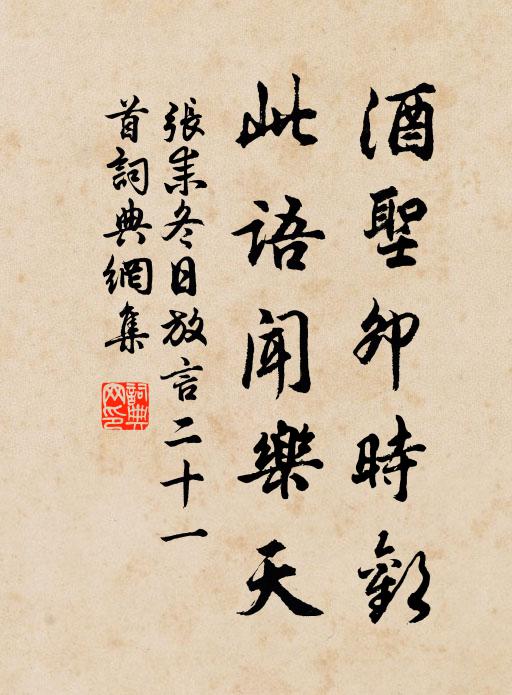 酒聖卯時歡
此語聞樂天
張耒冬日放言二十一
首詞典網集
詞典
网印